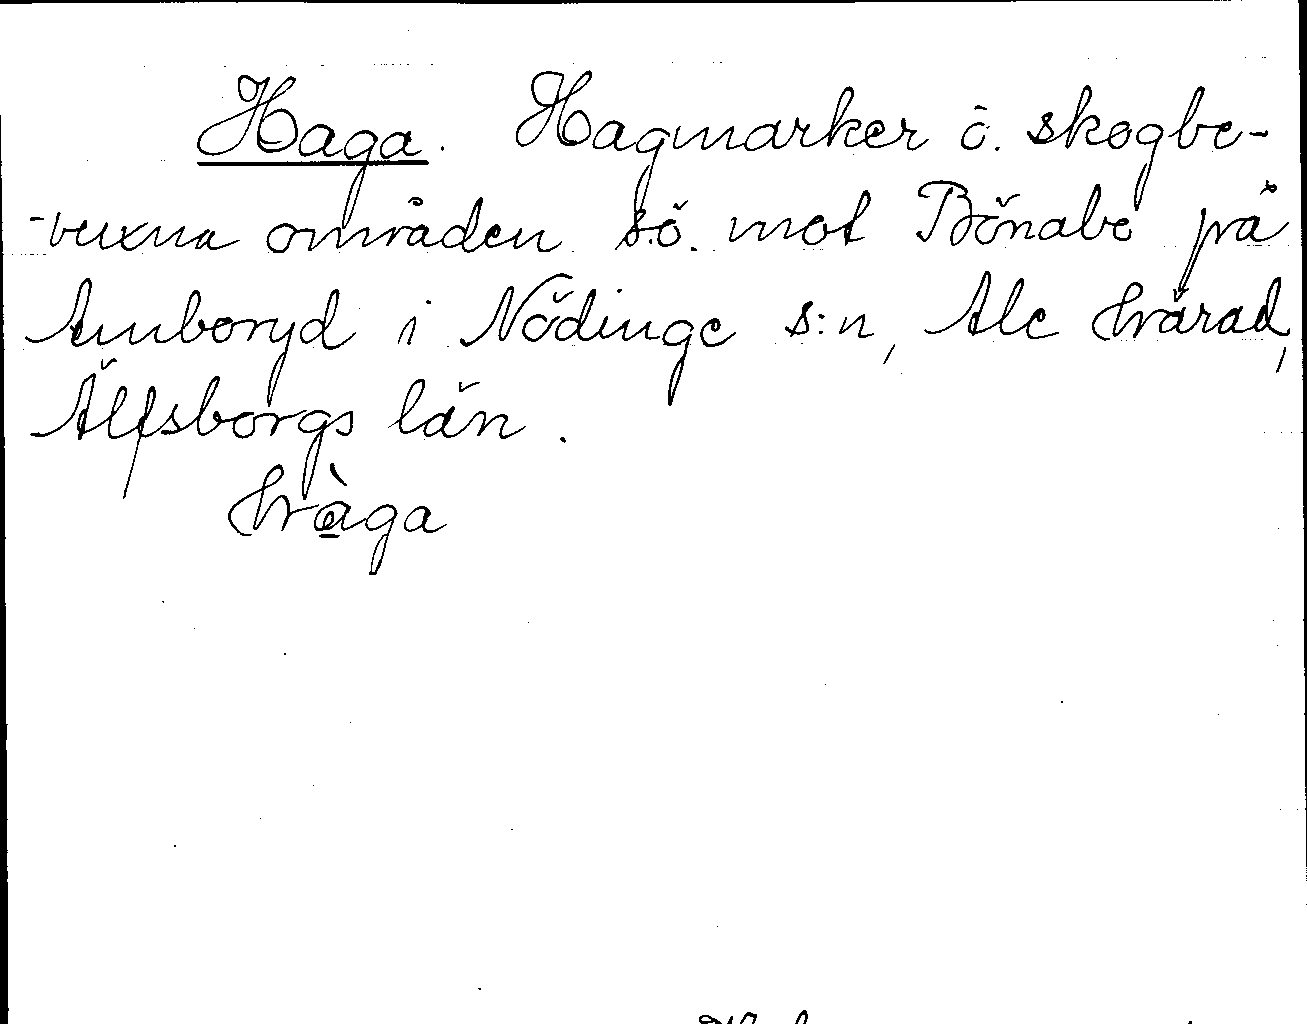 Haga. Hagmarker ö. skogbe-
-vuxna områden s.ö. mot Bönabo på
Amboryd i Nödinge s:n, Ale härad,
Älfsborgs län.
hàga